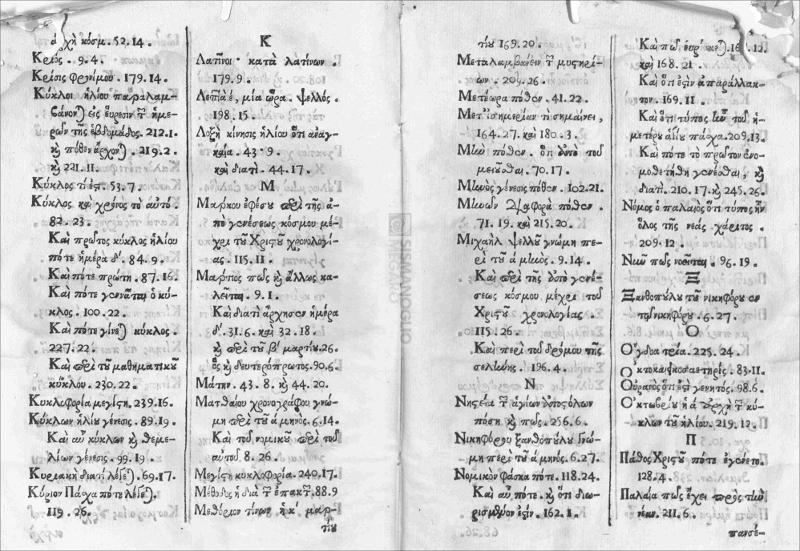 ἀρχὴ κόσμ. 52.14.
Κριός. 9.4.
Κρίσις φρενίμου. 179.14.
Κύκλοι ἡλίου παραλαμ-
βάνον) εἰς εὕρεσιν τ ἡμε-
ρῶν τῆς ἑβδομάδος. 212.1.
κ πόθεν ἄρχον). 219.2.
κ 221.11.
Κύκλος τί ἐςι. 53.7.
Κύκλος καὶ χρόνος τὸ αὐτό.
82.23.
Καὶ πρῶτος κύκλος ἡλίου
πότε ἡμέρᾳ δ'. 84.9.
Καὶ πότε πρώτη. 87.16.
Καὶ πότε γενᾶται ὁ κύ-
κλος. 100.22.
Καὶ πότε γίνε) κύκλος.
227.22.
Καὶ περὶ τοῦ μαθηματικοῦ
κύκλου. 230.22.
Κυκλοφορία μεγίςη. 239.16.
Κύκλων ἡλίου γένεσις. 89.19.
Καὶ αὖ κύκλων κ θεμε-
λίων γένεσις. 99.19.
Κυριακὴ διατί λέγε). 69.17.
Κύριον Πάχα πότε λέγε).
119.26.
Κ
Λατῖνοι κατὰ λατίνων.
179.9.
Λεπτὰ ἑ, μία ὥρα. ψελλός.
198.15.
Λοξὴ κίνησις ἡλίου ὅτι ἀναγ-
καία. 43.9.
καὶ διατί. 44.17.
Μ
Μάρκου ἐφέσου περὶ τῆς ἀ-
πὸ γενέσεως κόσμου μέ-
χρι τοῦ Χριςοῦ χρονολογί-
ας. 115.11.
Μάρτιος πῶς κ ἄλλως κα-
λεῖται. 9.1.
Καὶ διατί ἄρχησιν ἡμέρᾳ
δ'. 31.6. καὶ 32.18.
κ περὶ τοῦ β' μαρτίου. 26.
ὃς κ δευτερόπρωτος. 90.6.
Μάτην. 43.8. κ 44.20.
Ματθαίου χρονογράφου γνώ-
μη περὶ τοῦ ἀ μηνός. 6.14.
Καὶ τοῦ νομικοῦ περὶ τοῦ
αὐτοῦ. 8.26.
Μεγίςη κυκλοφορία. 240.17.
Μέθοδος ἡ διὰ τ ἐπακτ. 88.9
Μεθόριον τίνων ἡ κ' μαρ-
τίου
τίου 169.20.
Μεταλαμβάνειν τ μυςηρί-
ων. 209.26.
Μετέωρα πόθεν. 41.22.
Μετ' ἰσημερίαν τί σημαίνει,
164.27. καὶ 180.3.
Μὴν πόθεν. ὅτι ἀπὸ τοῦ
μειοῦσθαι. 70.17.
Μηνὸς γένεσις πόθεν. 102.21.
Μηνῶν διαφορὰ πόθεν.
71.19. καὶ 215.20.
Μιχαὴλ ψελλοῦ γνώμη πε-
ρὶ τοῦ ἀ μηνός. 9.14.
Καὶ περὶ τῆς ἀπὸ γενέ-
σεως κόσμου μέχρι τοῦ
Χριςοῦ χρονολογίας.
115.26.
Καὶ περὶ τοῦ δρόμου τῆς
σελήνης. 196.4.
Ν
Νηςεία τ ἁγίων ἀποςόλων
πόση κ πῶς. 256.6.
Νικηφόρου ξανθοπύλου γνώ-
μη περὶ τοῦ ἀ μηνός. 6.27.
Νομικὸν φάσκα πότε. 118.24.
Καὶ αὖ πότε. κ ὅτι διω-
ρισμένον ἐςίν. 162.1.
Καὶ πῶς εὑρίσκε). 16.12.
καὶ 168.21.
Καὶ ὅτι ἐςὶν ἀπαράλλακ-
τον. 169.11
Καὶ ὅτι τύπος ἦν τοῦ ἡ-
μετέρου ἁγίου πάσχα. 209.13.
Καὶ πότε τὸ πρῶτον ἐνο-
μοθετήθη γενέσθαι, κ
διατί. 210.17. κ 245.26.
Νόμος ὁ παλαιὸς ὅτι τύπος ἦν
ὅλος τῆς νέας χάριτος.
209.12.
Νῦν πῶς νοεῖται. 96.19.
Ξ
Ξανθοπύλου τοῦ νικηφόρου ἐν
τῷ νικηφόρου. 6.27.
Ο
Ὀγδοατρία. 225.24.
Ὀκτοκαιδεκαετηρίς. 83.11.
Οὐρανὸς ὅτι ἐςὶ γενητός. 98.6.
Ὀκτωβρίου ἡ ἀ ἀρχὴ τ κύ-
κλων τοῦ ἡλίου. 219.12.
Π
Πάθος Χριςοῦ πότε ἐγένετο.
128.4.
Παλαιὰ πῶς ἔχει πρὸς τὴν
νέαν. 211.6.
πανσέ-
© SISMANOGLIO